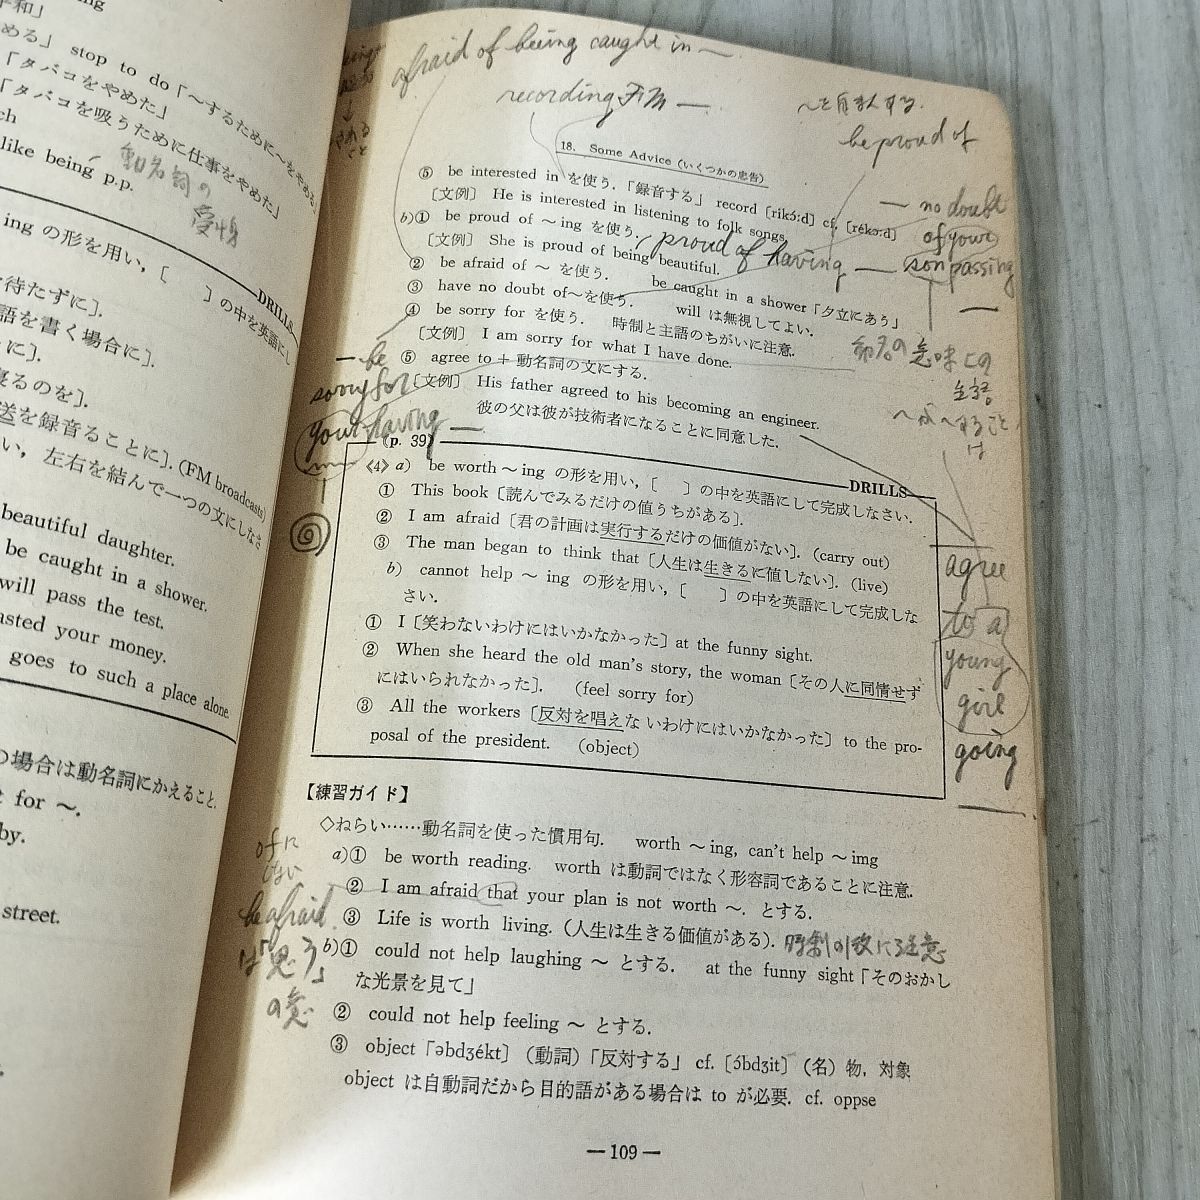 和」
める」 stop to do「～するために～をやめる」
「タバコをやめた」
「タバコを吸うために仕事をやめた」
like being p.p.
動名詞の
受身
ing の形を用い，〔　　〕の中を英語にし
DRILLS
待たずに〕.
語を書く場合に〕.
に〕.
るのを〕.
送を録音ることに〕. (FM broadcasts)
い，左右を結んで一つの文にしなさ
beautiful daughter.
be caught in a shower.
will pass the test.
asted your money.
goes to such a place alone.
の場合は動名詞にかえること.
for ～.
by.
street.
afraid of being caught in ―
recording FM ―
～を自まんする.
be proud of
18. Some Advice (いくつかの忠告)
⑤ be interested in を使う.「録音する」 record [rikɔ́:d] cf. [rékɔ:d]
〔文例〕 He is interested in listening to folk songs.
b)① be proud of ～ ing を使う.
proud of having ―
〔文例〕 She is proud of being beautiful.
② be afraid of ～ を使う. be caught in a shower「夕立にあう」
③ have no doubt of～を使う. will は無視してよい.
④ be sorry for を使う. 時制と主語のちがいに注意.
〔文例〕 I am sorry for what I have done.
⑤ agree to + 動名詞の文にする.
〔文例〕 His father agreed to his becoming an engineer.
彼の父は彼が技術者になることに同意した.
― no doubt
of your
son passing
―
動名の意味上の
主語
～が～すること
は
― be
sorry for
your having ―
(p. 39)
DRILLS
《4》a) be worth ～ ing の形を用い，〔　　〕の中を英語にして完成しなさい.
① This book〔読んでみるだけの値うちがある〕.
② I am afraid〔君の計画は実行するだけの価値がない〕. (carry out)
③ The man began to think that〔人生は生きるに値しない〕. (live)
b) cannot help ～ ing の形を用い，〔　　〕の中を英語にして完成しな
さい.
① I〔笑わないわけにはいかなかった〕at the funny sight.
② When she heard the old man's story, the woman〔その人に同情せず
にはいられなかった〕. (feel sorry for)
③ All the workers〔反対を唱えな いわけにはいかなかった〕 to the pro-
posal of the president. (object)
agree
to a
young
girl
going
【練習ガイド】
◇ねらい……動名詞を使った慣用句. worth ～ ing, can't help ～ img
a)① be worth reading. worth は動詞ではなく形容詞であることに注意.
② I am afraid that your plan is not worth ～. とする.
③ Life is worth living. (人生は生きる価値がある). 時制の一致に注意
b)① could not help laughing ～ とする. at the funny sight「そのおかし
な光景を見て」
② could not help feeling ～ とする.
③ object「əbdʒékt」(動詞)「反対する」 cf. [ɔ́bdʒit] (名) 物，対象
object は自動詞だから目的語がある場合は to が必要. cf. oppse
ofに
しない
be afraid
は「思う」
の意
—109—